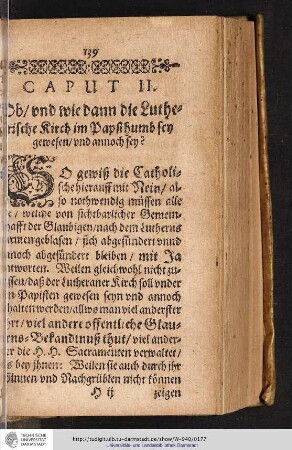 139
CAPUT II.
Ob/ vnd wie dann die Luthe-
rische Kirch im Papsthumb sey
gewesen/ vnd annoch sey?
SO gewiß die Catholi-
sche hierauff mit Nein/ al-
so nothwendig müssen alle
/ welche von sichtbarlicher Gemein-
schafft der Glaubigen/ nach dem Lutherus
/ sich abgesündert vnnd
annoch abgesündert bleiben/ mit Ja
antworten. Weilen gleichwohl nicht zu-
lassen/ daß der Lutheraner Kirch soll vnder
den Papisten gewesen seyn vnd annoch
erhalten werden/ allwo man viel anderster
lehrt/ viel andere offentliche Glau-
bens-Bekandtnuß thut/ viel ander-
ster die H. H. Sacramenten verwaltet/
als bey jhnen: Weilen sie auch durch jhr
Sinnen vnd Nachgrüblen nicht können
H ij zeigen
TECHNISCHE
UNIVERSITÄT
DARMSTADT
http://tudigit.ulb.tu-darmstadt.de/show/W-940/0177
Universitäts- und Landesbibliothek Darmstadt